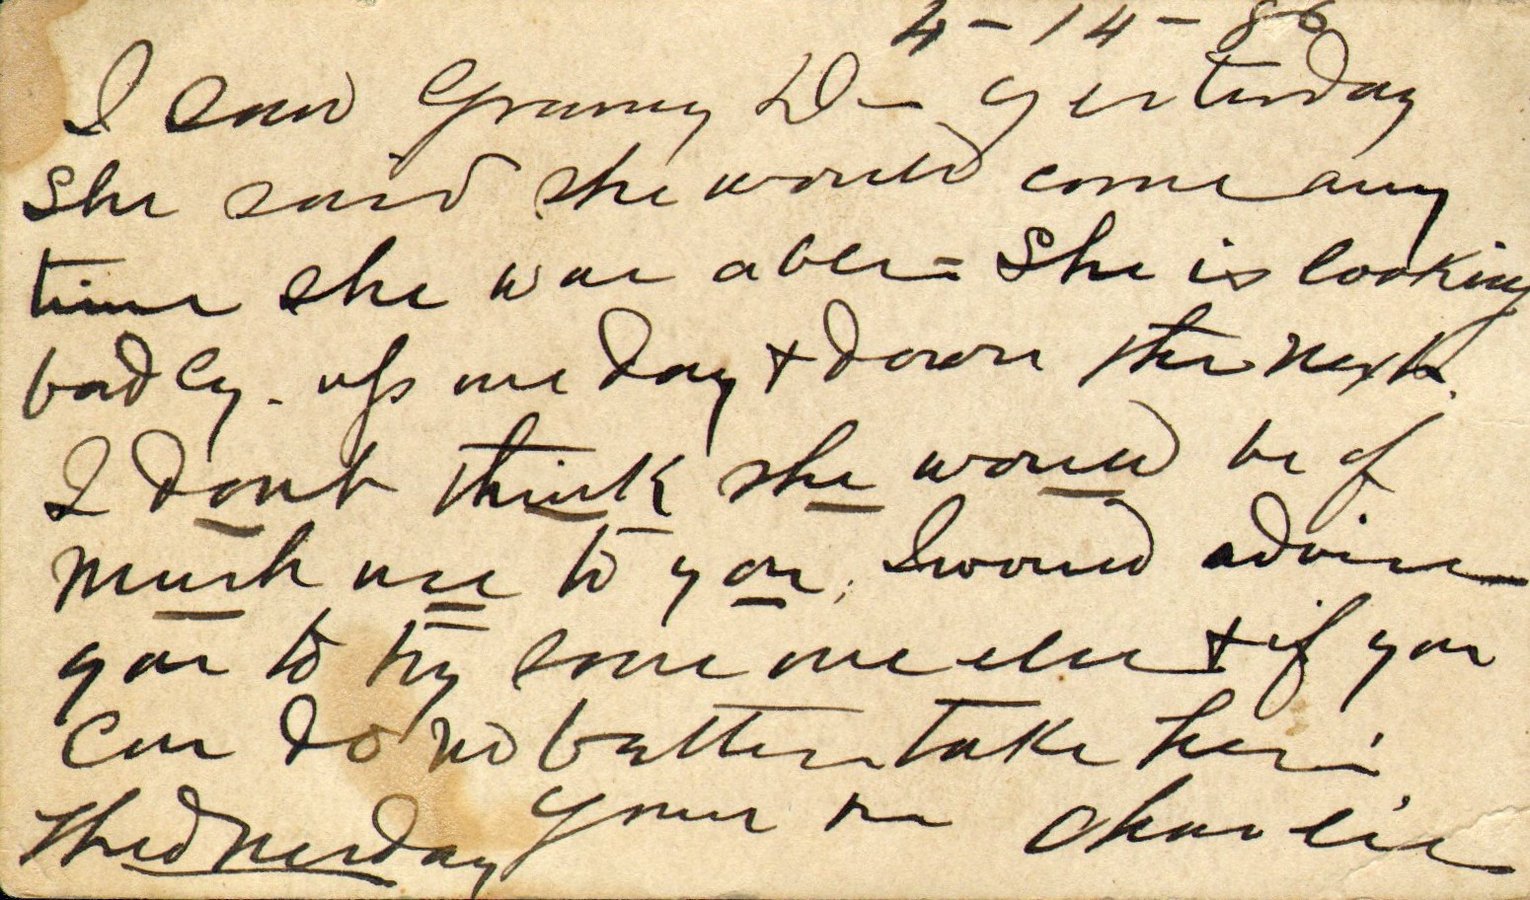 4-14-86
I saw Granny D— yesterday
She said she would come any
time she was able = She is looking
badly - up one day & down the next.
I dont think she would be of
much use to you, I would advise
you to try some one else & if you
can do no better take her.
Wednesday Your Charlie